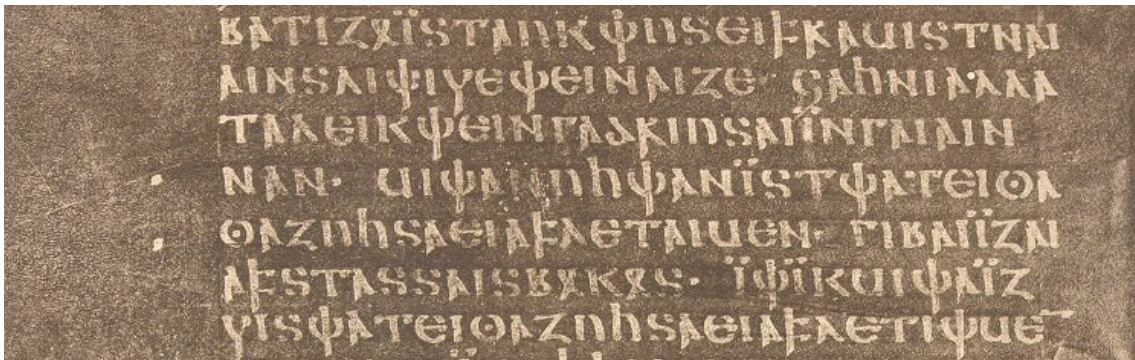 𐌱𐌰𐍄𐌹𐌶𐍉𐌹̈𐍃𐍄𐌰𐌿𐌺𐌸𐌿𐍃𐌴𐌹𐍆𐍂𐌰𐌵𐌹𐍃𐍄𐌽𐌰𐌹
𐌰𐌹𐌽𐍃𐌻𐌹𐌸𐌹𐍅𐌴𐌸𐌴𐌹𐌽𐌰𐌹𐌶𐌴· 𐌾𐌰𐌷𐌽𐌹𐌰𐌻𐌻𐌰
𐍄𐌰𐌻𐌴𐌹𐌺𐌸𐌴𐌹𐌽𐌲𐌰𐌳𐍂𐌹𐌿𐍃𐌰𐌹𐌹̈𐌽𐌲𐌰𐌹𐌰𐌹𐌽
𐌽𐌰𐌽· 𐌵𐌹𐌸𐌰𐌽𐌿𐌷𐌸𐌰𐌽𐌹̈𐍃𐍄𐌸𐌰𐍄𐌴𐌹𐍈𐌰
𐍈𐌰𐌶𐌿𐌷𐍃𐌰𐌴𐌹𐌰𐍆𐌻𐌴𐍄𐌰𐌹𐌵𐌴𐌽· 𐌲𐌹𐌱𐌰𐌹𐌹̈𐌶𐌰𐌹
𐌰𐍆𐍃𐍄𐌰𐍃𐍃𐌰𐌹𐍃𐌱𐍉𐌺𐍉𐍃· 𐌹̈𐌸𐌹̈𐌺𐌵𐌹𐌸𐌰𐌹̈𐌶
𐍅𐌹𐍃𐌸𐌰𐍄𐌴𐌹𐍈𐌰𐌶𐌿𐌷𐍃𐌰𐌴𐌹𐌰𐍆𐌻𐌴𐍄𐌹𐌸𐌵𐌴̅